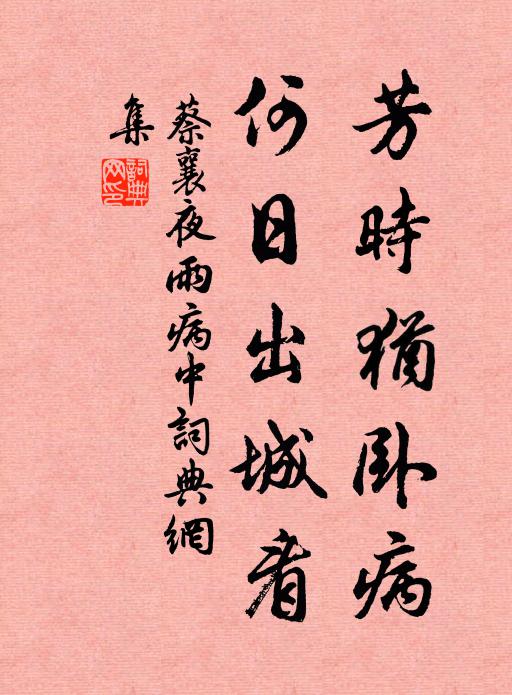 芳時猶卧病
何日出城看
蔡襄夜雨病中詞典網
集
詞典
网印